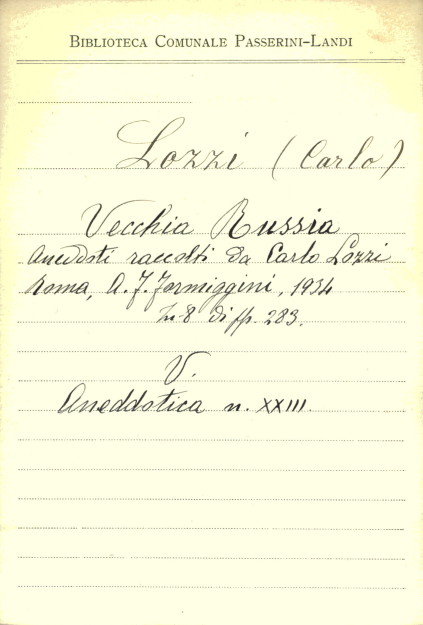 BIBLIOTECA COMUNALE PASSERINI-LANDI
Lozzi (Carlo)
Vecchia Russia
Aneddoti raccolti da Carlo Lozzi
Roma, A. F. Formiggini, 1934
In-8 di pp. 283.
V.
Aneddotica n. XXIII.